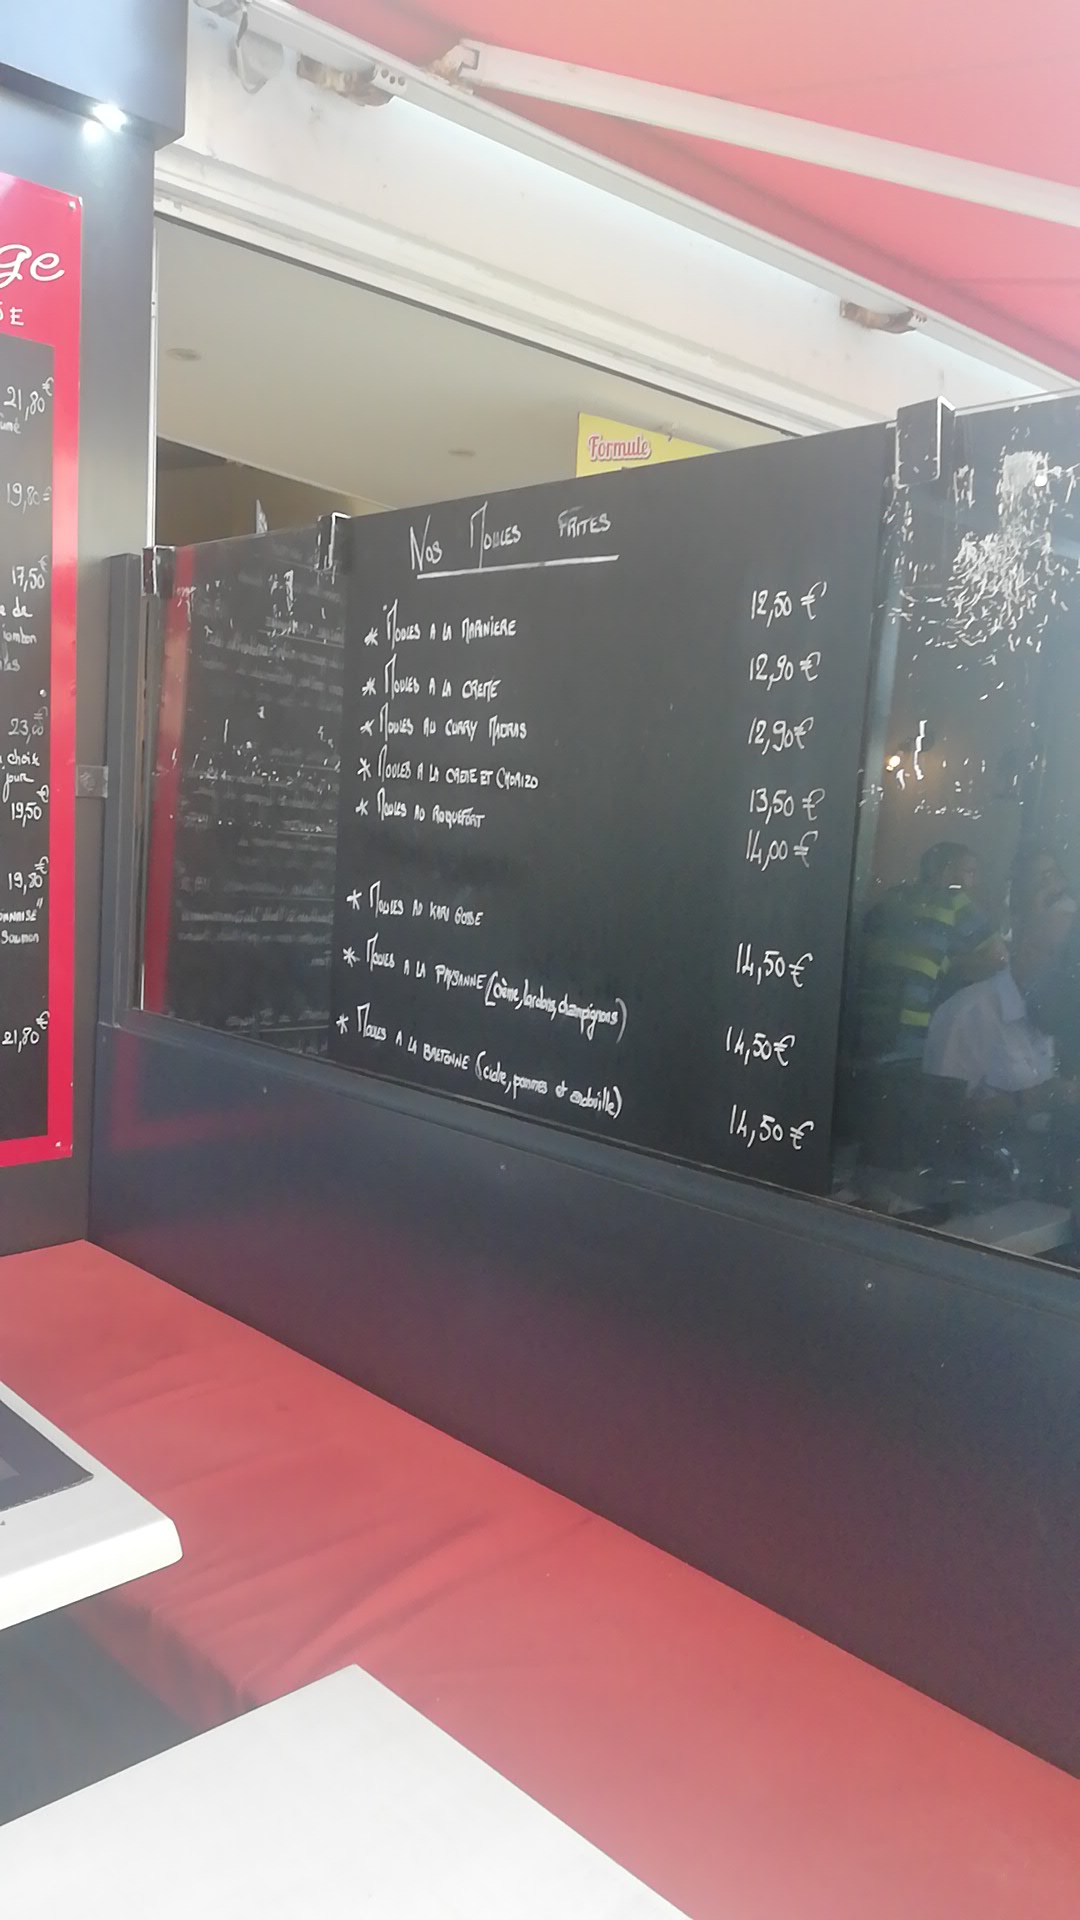 ge
21,80€
19,80€
17,50€
e de
jambon
23,00€
choix
jour
19,50€
19,80€
Saumon
21,80€
Formule
NOS MOULES FRITES
* MOULES A LA MARINIERE 12,50 €
* MOULES A LA CREME 12,90 €
* MOULES AU CURRY MADRAS 12,90€
* MOULES A LA CREME ET CHORIZO 13,50 €
* MOULES AU ROQUEFORT 14,00 €
* MOULES AU KARI GOSSE 14,50 €
* MOULES A LA PAYSANNE (crème, lardons, champignons) 14,50€
* MOULES A LA BRETONNE (cidre, pommes et andouille) 14,50 €